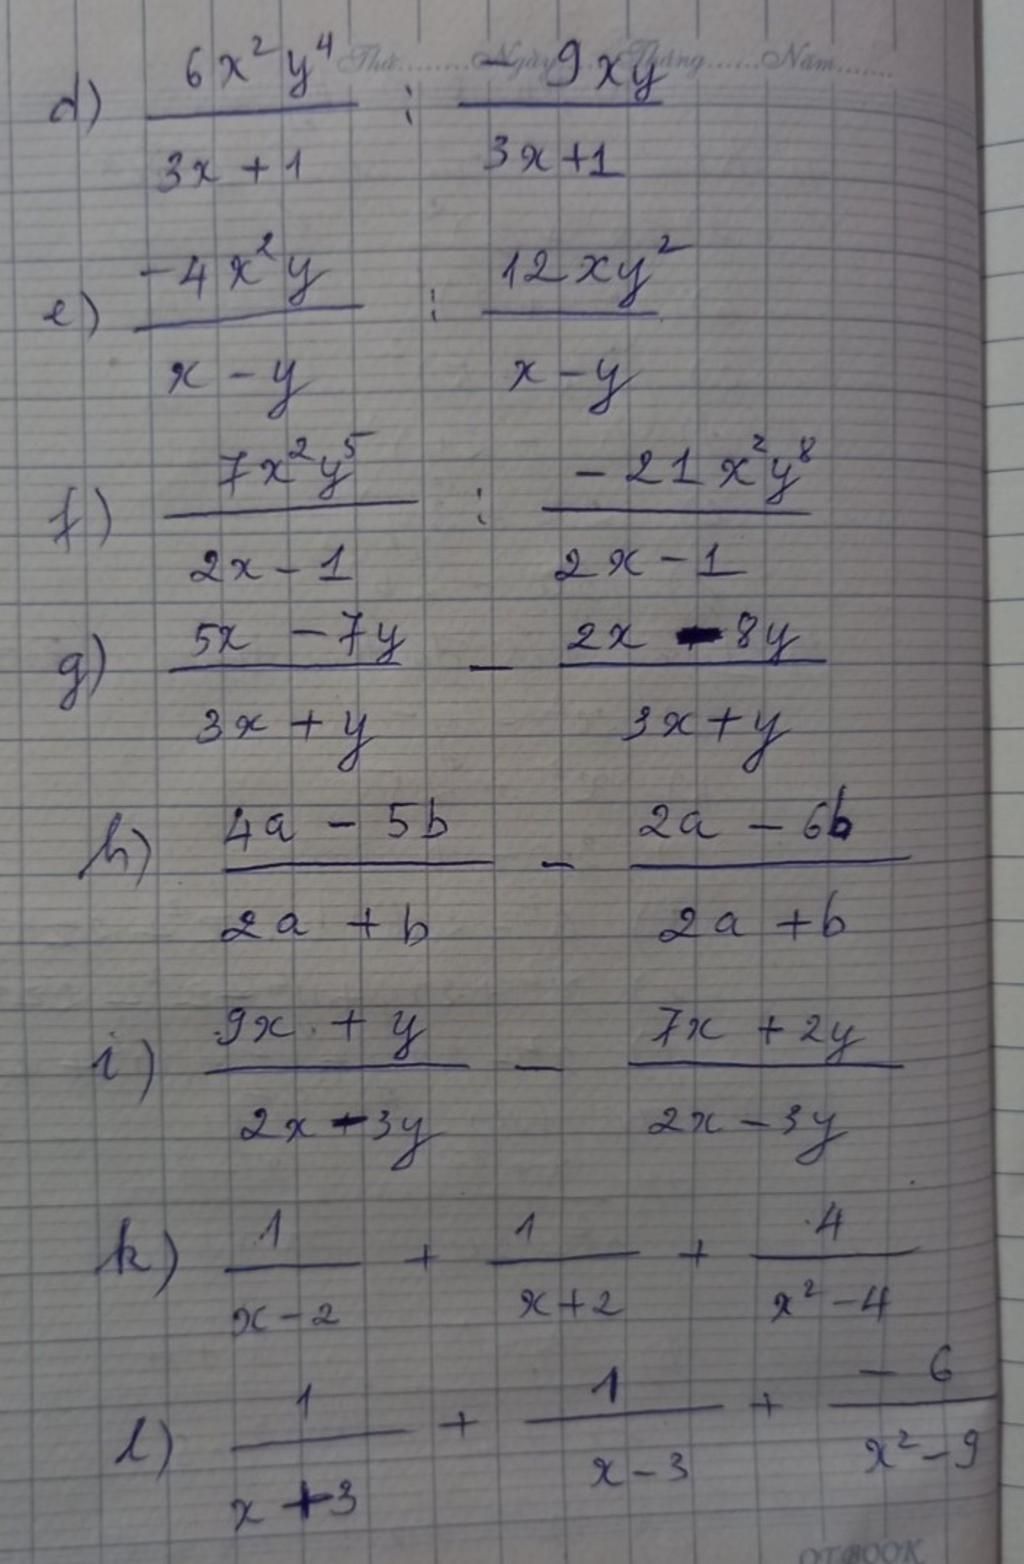 Thứ........Ngày......Tháng......Năm.......
d) 6x²y⁴/(3x + 1) : -9xy/(3x+1)
e) -4x²y/(x - y) : 12xy²/(x - y)
f) 7x²y⁵/(2x - 1) : -21x²y⁸/(2x - 1)
g) (5x - 7y)/(3x + y) - (2x - 8y)/(3x + y)
h) (4a - 5b)/(2a + b) - (2a - 6b)/(2a + b)
i) (9x + y)/(2x - 3y) - (7x + 2y)/(2x - 3y)
k) 1/(x - 2) + 1/(x + 2) + 4/(x² - 4)
l) 1/(x + 3) + 1/(x - 3) + -6/(x² - 9)